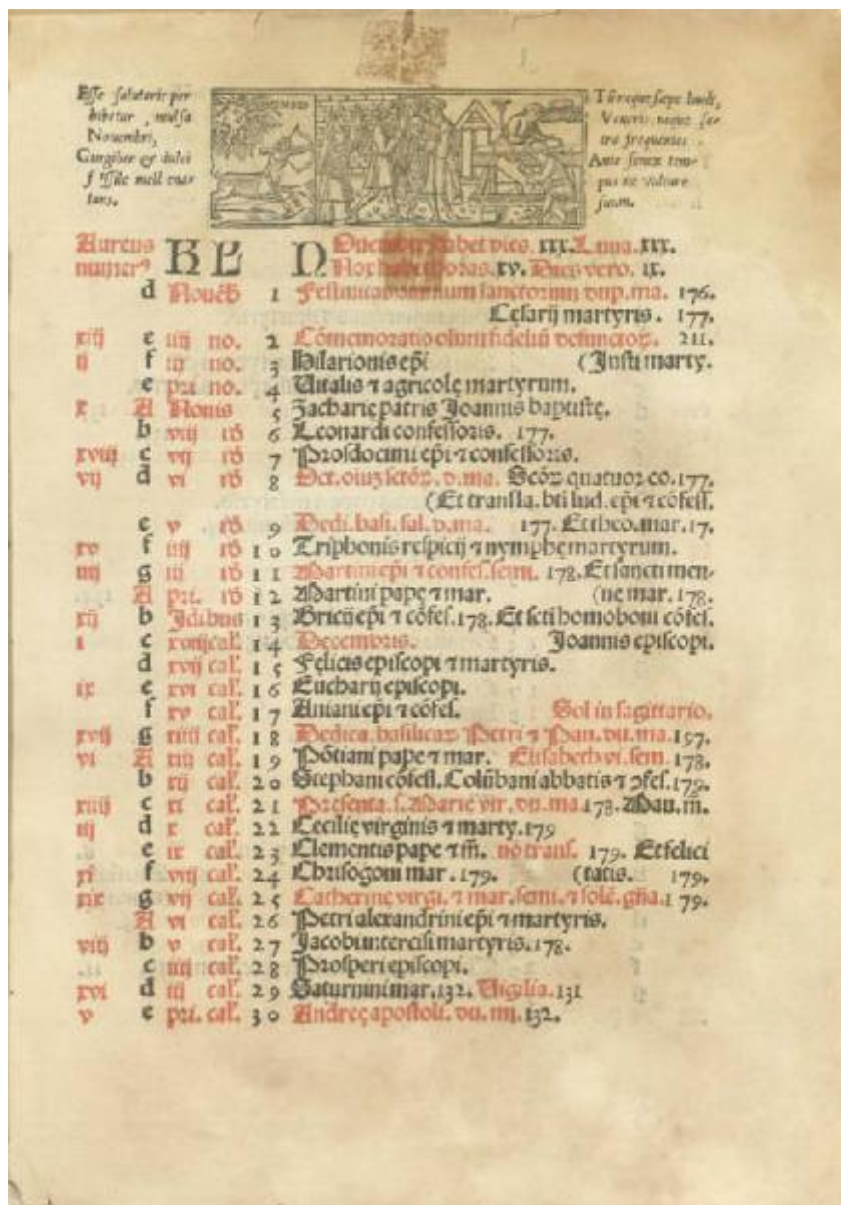 Esse salutaris per
hibetur, mulsa
Nouembri,
Gingiber & dulci
mell
Tuque sæpe laudi,
Veneris neque sa-
cra frequentes
Ante senex tem-
pus ne
Aureus
numerꝰ KL Nouember habet dies. xxx. Luna. xxx.
Nox habet horas. xv. Dies vero. ix.
d Nouēb 1 Festiuitas omnium sanctorum dup. ma. 176.
Cęsarij martyris. 177.
xiij e iiij no. 2 Cōmemoratio oīum fideliū defunctoꝝ. 211.
ij f iij no. 3 Hilarionis epī (Justi marty.
e pri no. 4 Uitalis ⁊ agricolę martyrum.
x A Nonis 5 Zacharię patris Joannis baptistę.
b viij id 6 Leonardi confessoris. 177.
xviij c vij id 7 Prosdocimi epī ⁊ confessoris.
vij d vi id 8 Oct. oīuꝫ sctōꝝ. d. ma. Scōꝝ quatuor co. 177.
(Et transla. bti lud. epī ⁊ cōfess.
e v id 9 Dedi. basi. sal. d. ma. 177. Et theo. mar. 17.
xv f iiij id 10 Triphonis respicij ⁊ nymphę martyrum.
iiij g iij id 11 Martini epī ⁊ confes. semi. 178. Et sancti men-
A pri. id 12 Martini papę ⁊ mar. (ne mar. 178.
xij b Idibus 13 Bricij epī ⁊ cōfes. 178. Et scti homoboni cōfes.
i c xviij cal. 14 Decembris. Joannis episcopi.
d xvij cal. 15 Felicis episcopi ⁊ martyris.
ix e xvi cal. 16 Eucharij episcopi.
f xv cal. 17 Aniani epī ⁊ cōfes. Sol in sagittario.
xvij g xiiij cal. 18 Dedica. basilicaꝝ Petri ⁊ Pau. du. ma. 197.
vi A xiij cal. 19 Pōtiani pape ⁊ mar. Elisabeth vi. sem. 178.
b xij cal. 20 Stephani cōfess. Colūbani abbatis ⁊ ꝯfes. 179.
xiiij c xi cal. 21 Presenta. s. Marie vir. du. ma 178. Mau. m̄.
iij d x cal. 22 Cecilię virginis ⁊ marty. 179
e ix cal. 23 Clementis pape ⁊ m̄. nō trans. 179. Et felici
xi f viij cal. 24 Chrisogoni mar. 179. (tatis. 179.
xix g vij cal. 25 Catherinę virgi. ⁊ mar. semi. ⁊ solē. gn̄a. 179.
A vi cal. 26 Petri alexandrini epī ⁊ martyris.
viij b v cal. 27 Jacobi intercisi martyris. 178.
c iiij cal. 28 Prosperi episcopi.
xvi d iij cal. 29 Saturnini mar. 132. Uigilia. 131
v e pri. cal. 30 Andreę apostoli. du. mi. 132.